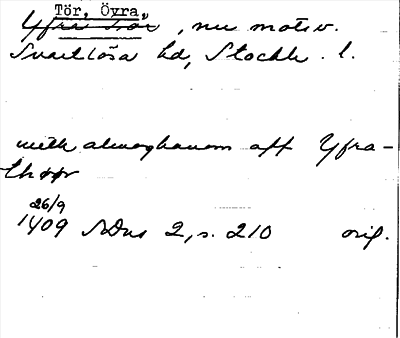 Tör, Övra,
Yfra tör, nu motsv.
Svartlösa hd, Stockh. l.
meth almoghanom aff Yfra-
thoor
26/9
1409 SDns 2, s. 210 orig.